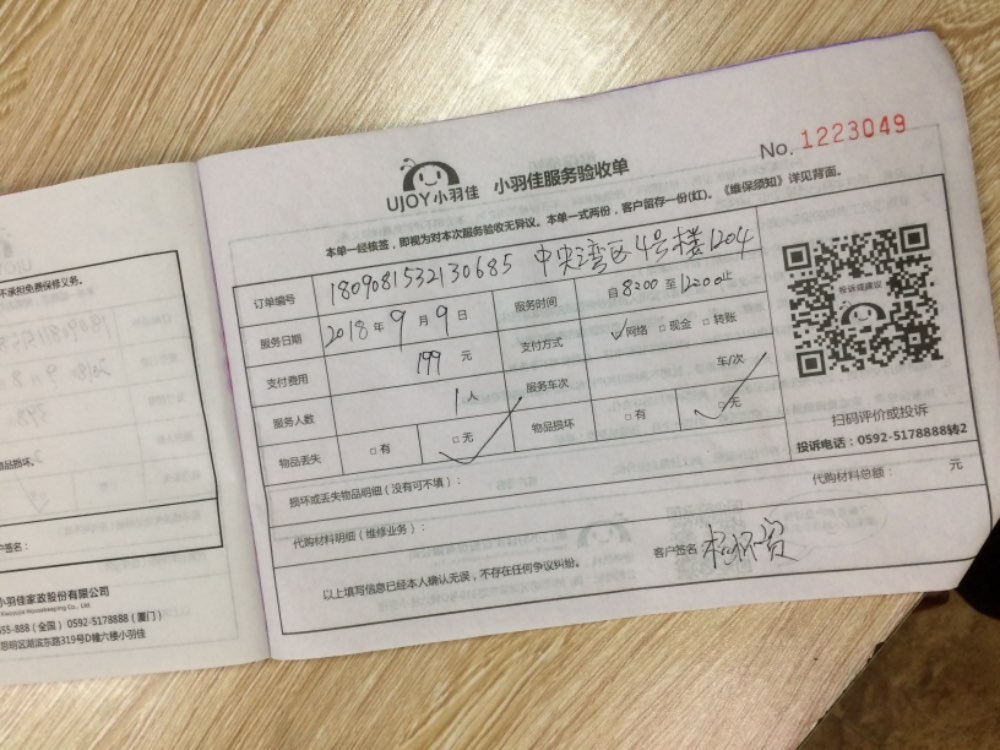 不承担免费保修义务。
物品损坏。
户签名：
小羽佳家政股份有限公司
Xiaoyujia Housekeeping Co., Ltd.
555-888（全国） 0592-5178888（厦门）
思明区湖滨东路319号D幢六楼小羽佳
No. 1223049
UJOY小羽佳 小羽佳服务验收单
本单一经核签，即视为对本次服务验收无异议。本单一式两份，客户留存一份(红)。《维保须知》详见背面。
订单编号 180908153213​0685 中央湾区4号楼1204
服务日期 2018年9月9日 服务时间 自8200至1200止
支付费用 199 元 支付方式 网络 现金 转账
服务人数 1人 服务车次 车/次
物品丢失 有 无 物品损坏 有 无
投诉或建议
扫码评价或投诉
投诉电话：0592-5178888转2
损坏或丢失物品明细（没有可不填）：
代购材料明细（维修业务）： 代购材料总额： 元
以上填写信息已经本人确认无误，不存在任何争议纠纷。 客户签名